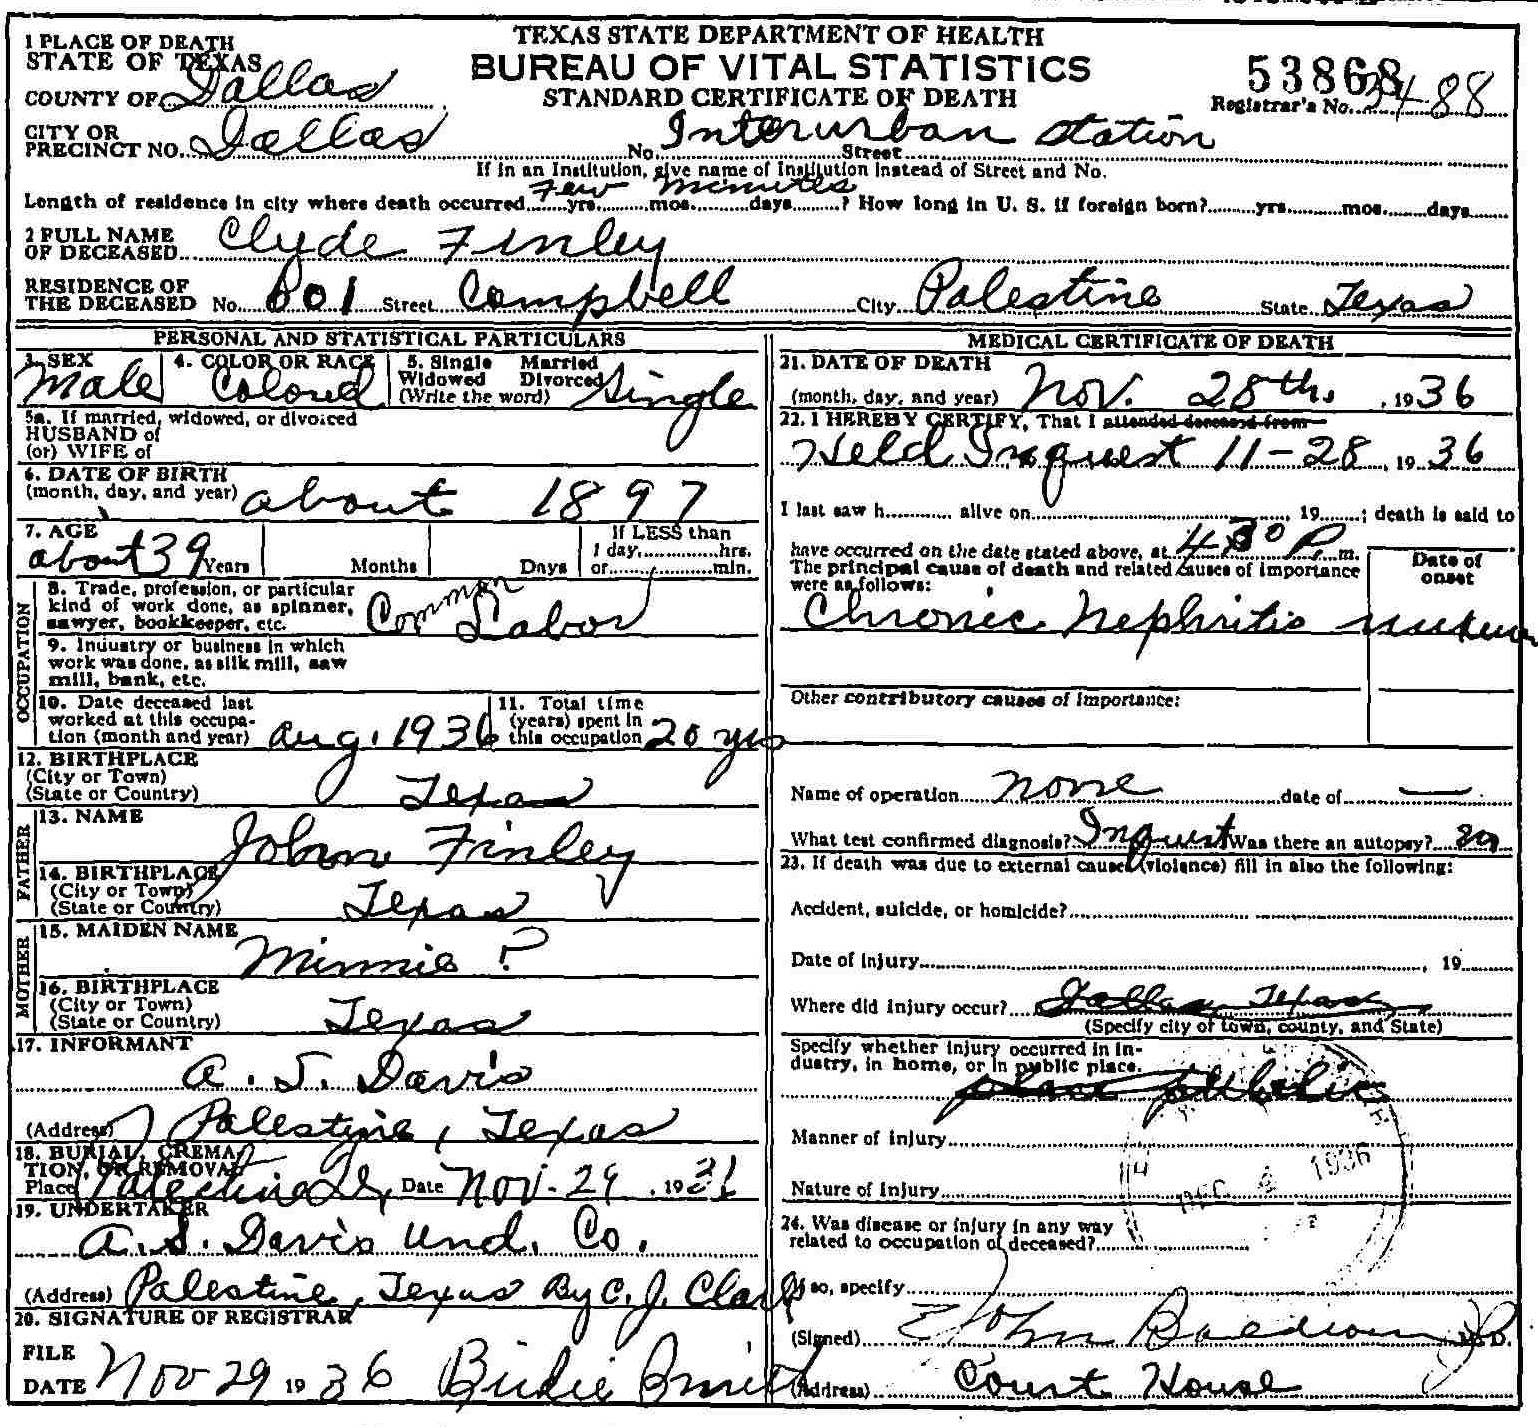 TEXAS STATE DEPARTMENT OF HEALTH
BUREAU OF VITAL STATISTICS
STANDARD CERTIFICATE OF DEATH
53868
Registrar's No. 3488
1 PLACE OF DEATH
STATE OF TEXAS
COUNTY OF Dallas
CITY OR
PRECINCT NO. Dallas No. Interurban Station Street
If in an Institution, give name of Institution instead of Street and No.
Length of residence in city where death occurred Few yrs. minutes mos. days ? How long in U. S. if foreign born? yrs. mos. days
2 FULL NAME
OF DECEASED Clyde Finley
RESIDENCE OF
THE DECEASED No. 801 Street Campbell City Palestine State Texas
PERSONAL AND STATISTICAL PARTICULARS
3. SEX
Male
4. COLOR OR RACE
Colored
5. Single Married
Widowed Divorced
(Write the word) Single
5a. If married, widowed, or divorced
HUSBAND of
(or) WIFE of
6. DATE OF BIRTH
(month, day, and year) about 1897
7. AGE
about 39 Years Months Days
If LESS than
1 day, hrs.
or min.
OCCUPATION
8. Trade, profession, or particular
kind of work done, as spinner,
sawyer, bookkeeper, etc. Common Labor
9. Industry or business in which
work was done, as silk mill, saw
mill, bank, etc.
10. Date deceased last
worked at this occupa-
tion (month and year) Aug. 1936
11. Total time
(years) spent in
this occupation 20 yrs
12. BIRTHPLACE
(City or Town)
(State or Country) Texas
FATHER
13. NAME
John Finley
14. BIRTHPLACE
(City or Town)
(State or Country) Texas
MOTHER
15. MAIDEN NAME
Minnie ?
16. BIRTHPLACE
(City or Town)
(State or Country) Texas
17. INFORMANT
A. S. Davis
(Address) Palestine, Texas
18. BURIAL, CREMA-
TION, OR REMOVAL
Place Palestine Date Nov. 29, 1936
19. UNDERTAKER
A. S. Davis Und. Co.
(Address) Palestine, Texas By C. J. Clark
20. SIGNATURE OF REGISTRAR
FILE
DATE Nov 29 1936 Birdie Smith
MEDICAL CERTIFICATE OF DEATH
21. DATE OF DEATH
(month, day, and year) Nov. 28th. , 1936
22. I HEREBY CERTIFY, That I attended deceased from
Held Inquest 11-28, 1936
I last saw h alive on , 19 ; death is said to
have occurred on the date stated above, at 430 P m.
The principal cause of death and related causes of importance
were as follows:
Date of
onset
Chronic Nephritis
Other contributory causes of importance:
Name of operation None date of —
What test confirmed diagnosis? Inquest Was there an autopsy?
23. If death was due to external causes (violence) fill in also the following:
Accident, suicide, or homicide?
Date of injury , 19
Where did injury occur? Dallas, Texas
(Specify city or town, county, and State)
Specify whether injury occurred in in-
dustry, in home, or in public place.
place public
Manner of injury
Nature of injury
DEC 4 1936
24. Was disease or injury in any way
related to occupation of deceased?
If so, specify
(Signed) John Baldwin J.P. M.D.
(Address) Court House